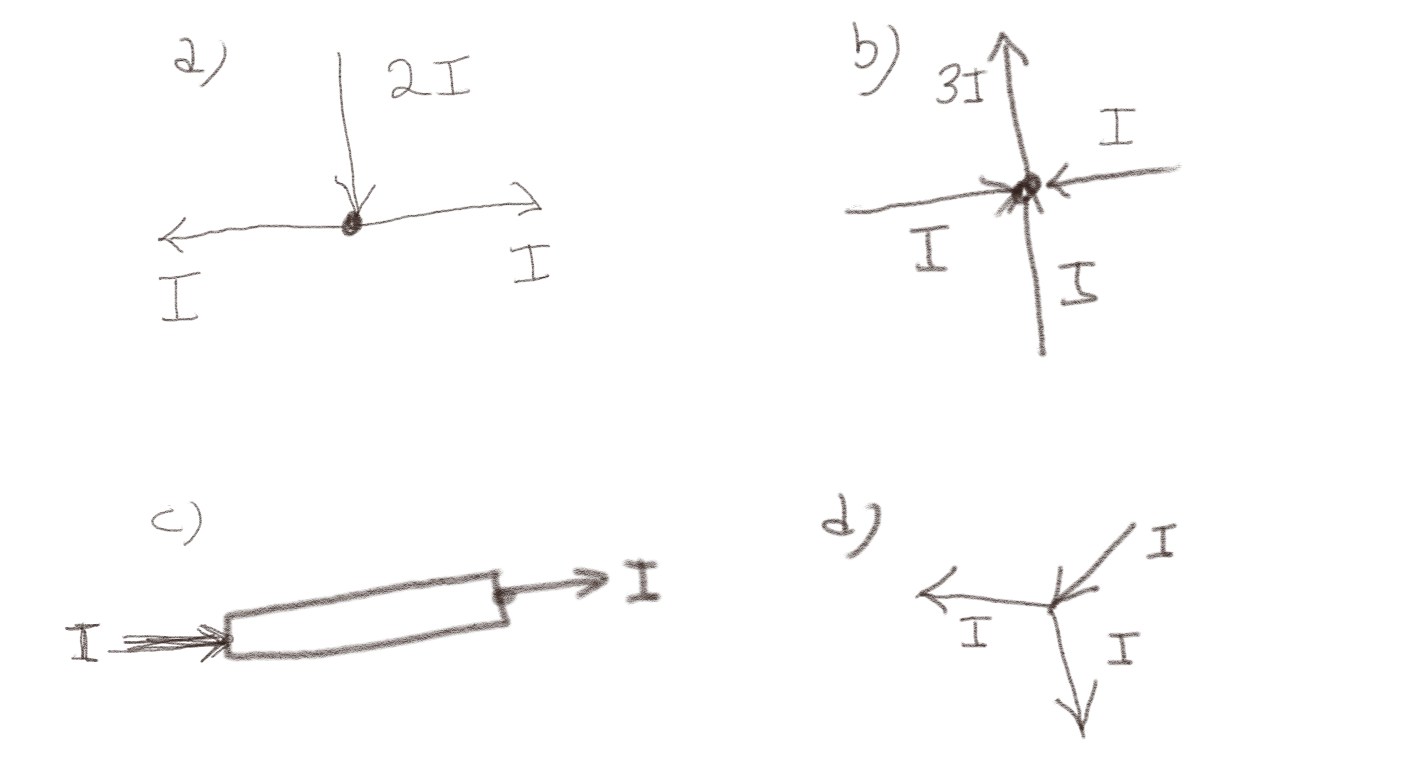 a) 2I
I I
b) 3I I
I I
c) I I
d) I
I I